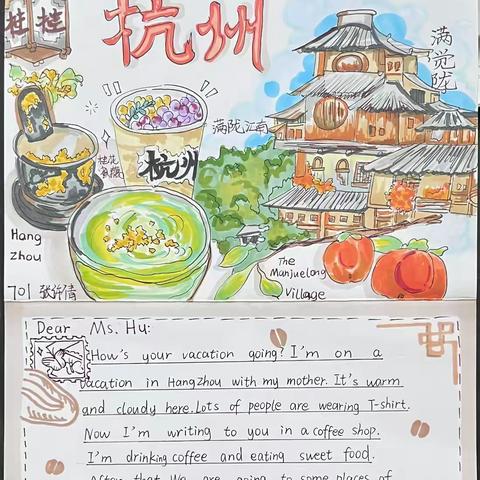 杭州
满觉陇
满陇江南
杭州
Hang
zhou
The
Manjuelong
Village
701
Dear Ms. Hu:
How's your vacation going? I'm on a
vacation in Hangzhou with my mother. It's warm
and cloudy here. Lots of people are wearing T-shirt.
Now I'm writing to you in a coffee shop.
I'm drinking coffee and eating sweet food.
After that We are going to some places of